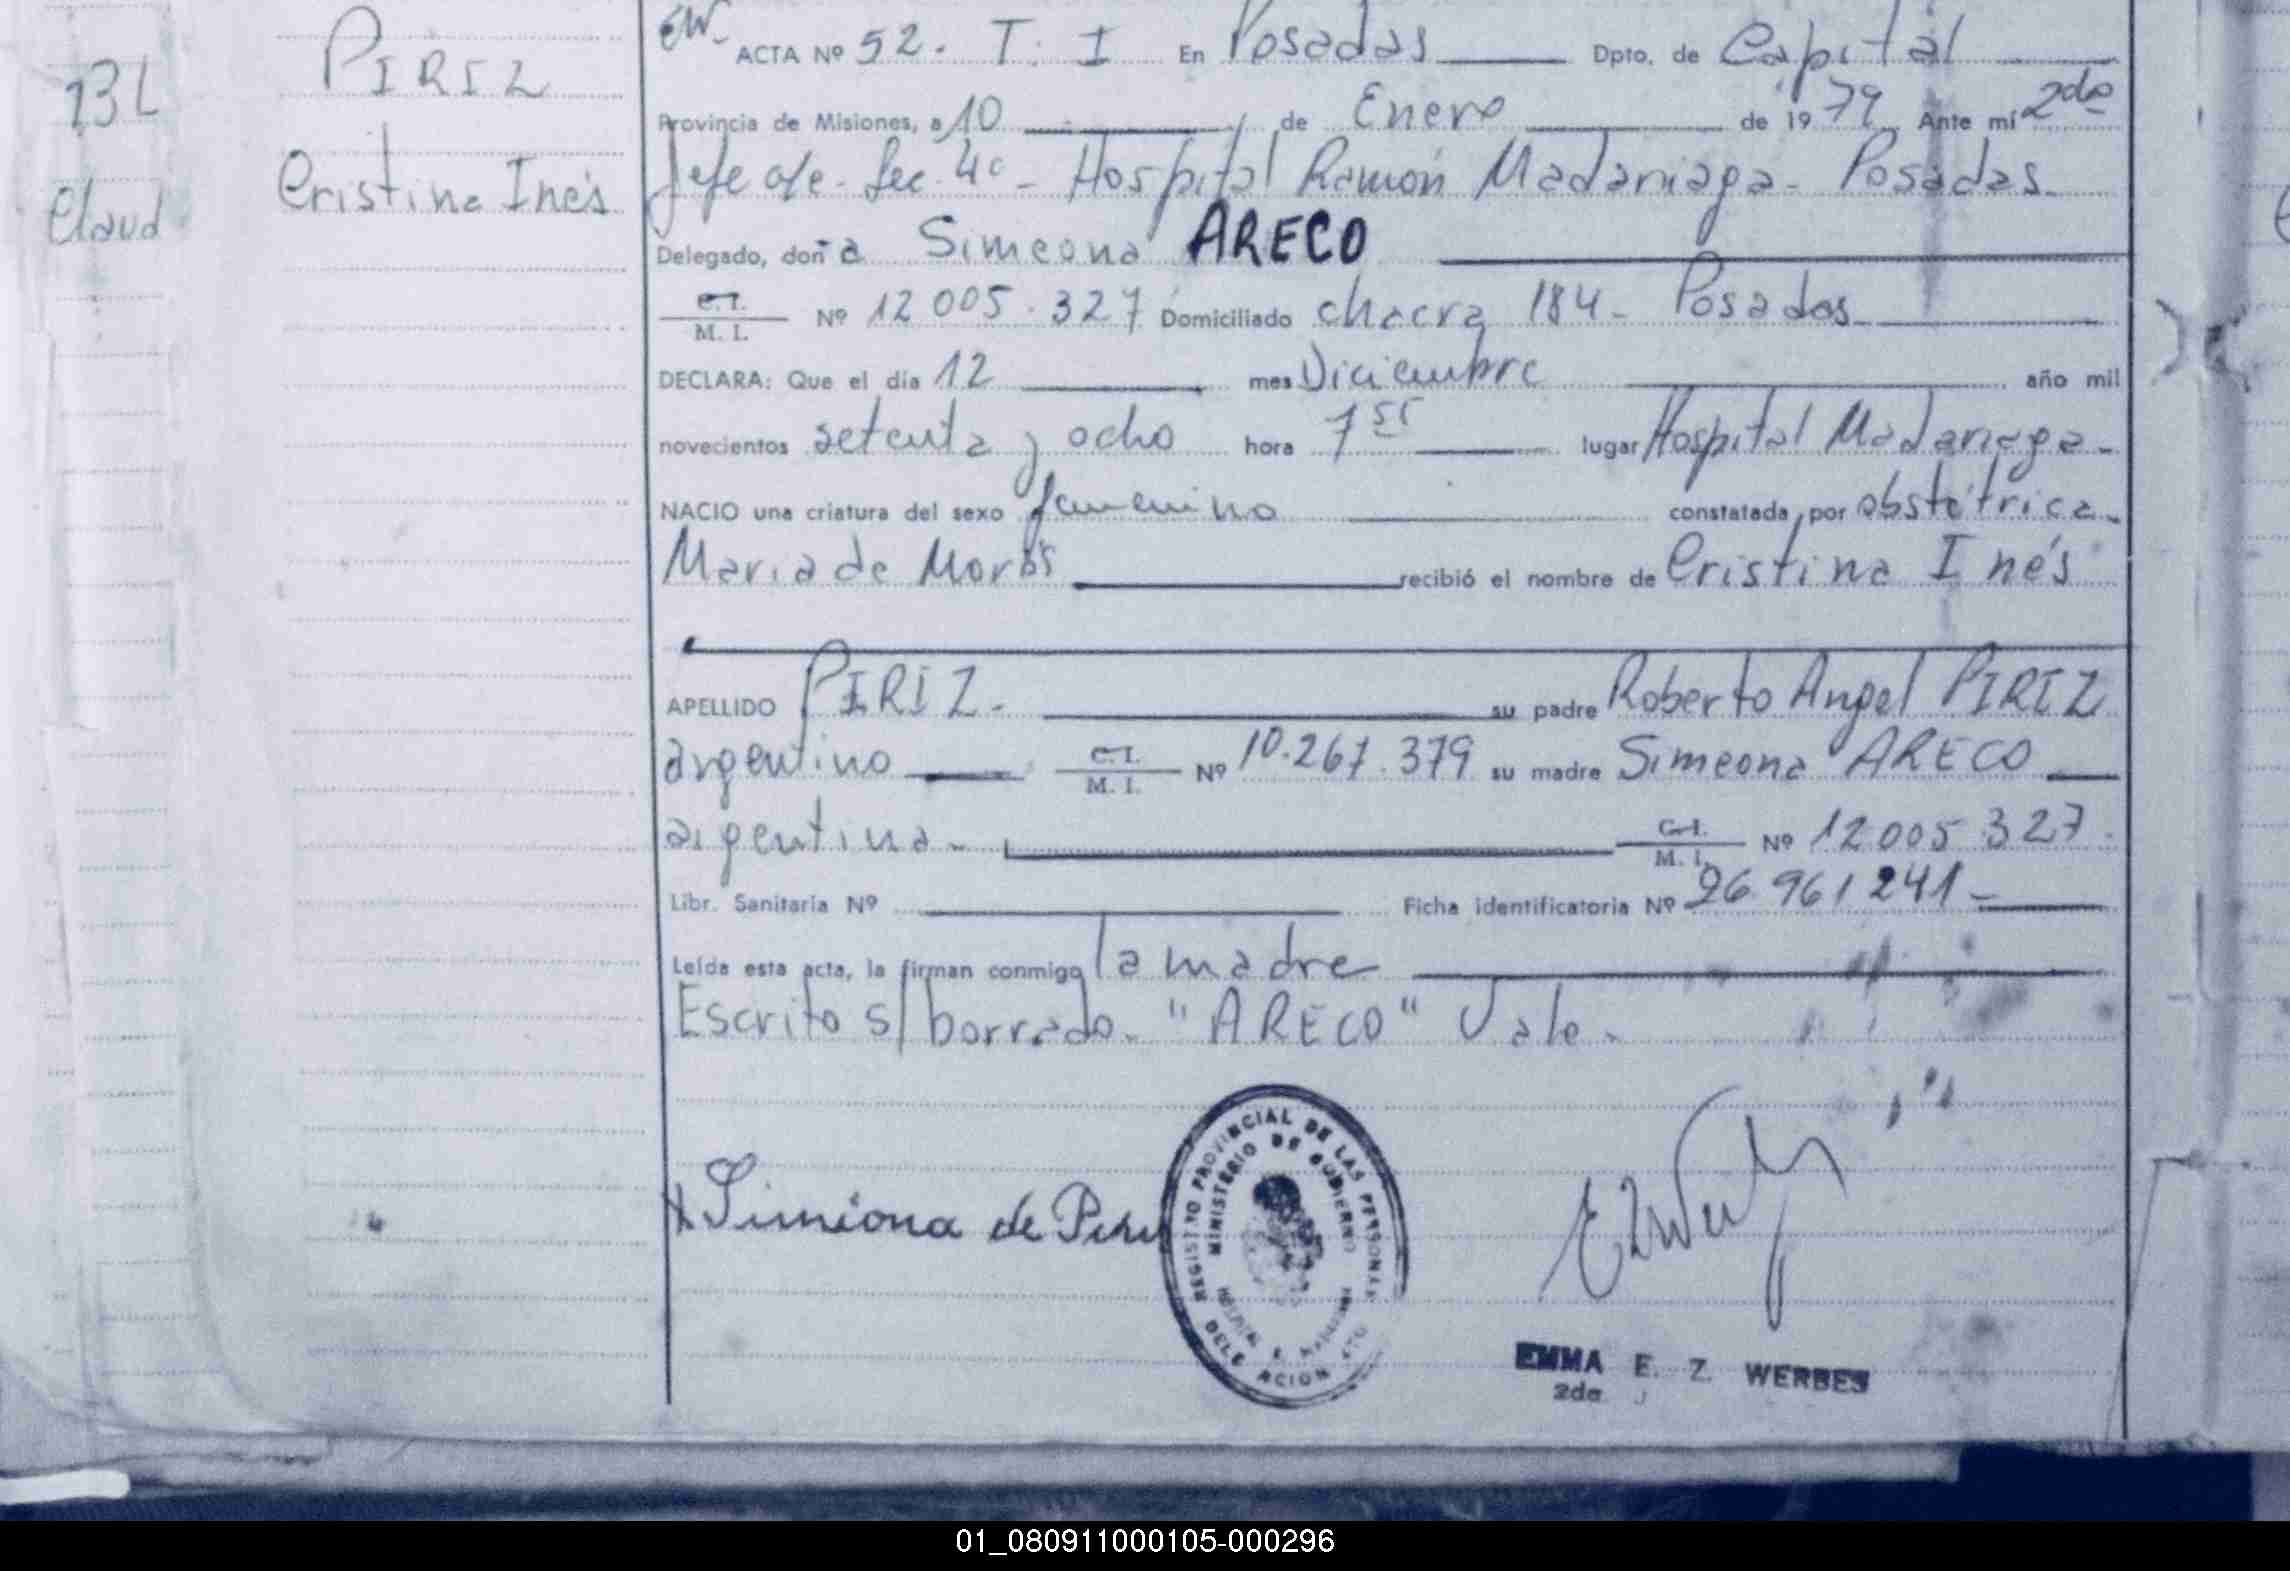 PIRIZ
Cristina Inés
BL
Claud
EW. ACTA Nº 52. T. I En Posadas Dpto. de Capital
Provincia de Misiones, a 10 de Enero de 1979 Ante mí 2do
Jefe ofe. Sec. 4º - Hospital Ramón Madariaga - Posadas
Delegado, doña Simeona ARECO
C.I. / M. I. Nº 12 005.327 Domiciliado chacra 184 - Posadas
DECLARA: Que el día 12 mes Diciembre año mil
novecientos setenta y ocho hora 7 lugar Hospital Madariaga.
NACIO una criatura del sexo femenino constatada por obstétrica
Maria de recibió el nombre de Cristina Inés
APELLIDO PIRIZ - su padre Roberto Angel PIRIZ
argentino C.I. / M. I. Nº 10.267.379 su madre Simeona ARECO
argentina - C.I. / M. I. Nº 12 005 327
Libr. Sanitaria Nº Ficha identificatoria Nº 26 961 241 -
Leída esta acta, la firman conmigo la madre
Escrito s/ borrado. "ARECO" Vale.
Simeona de
REGISTRO PROVINCIAL DE LAS PERSONAS
MINISTERIO DE GOBIERNO
EMMA E. Z. WERBES
2da J
01_080911000105-000296